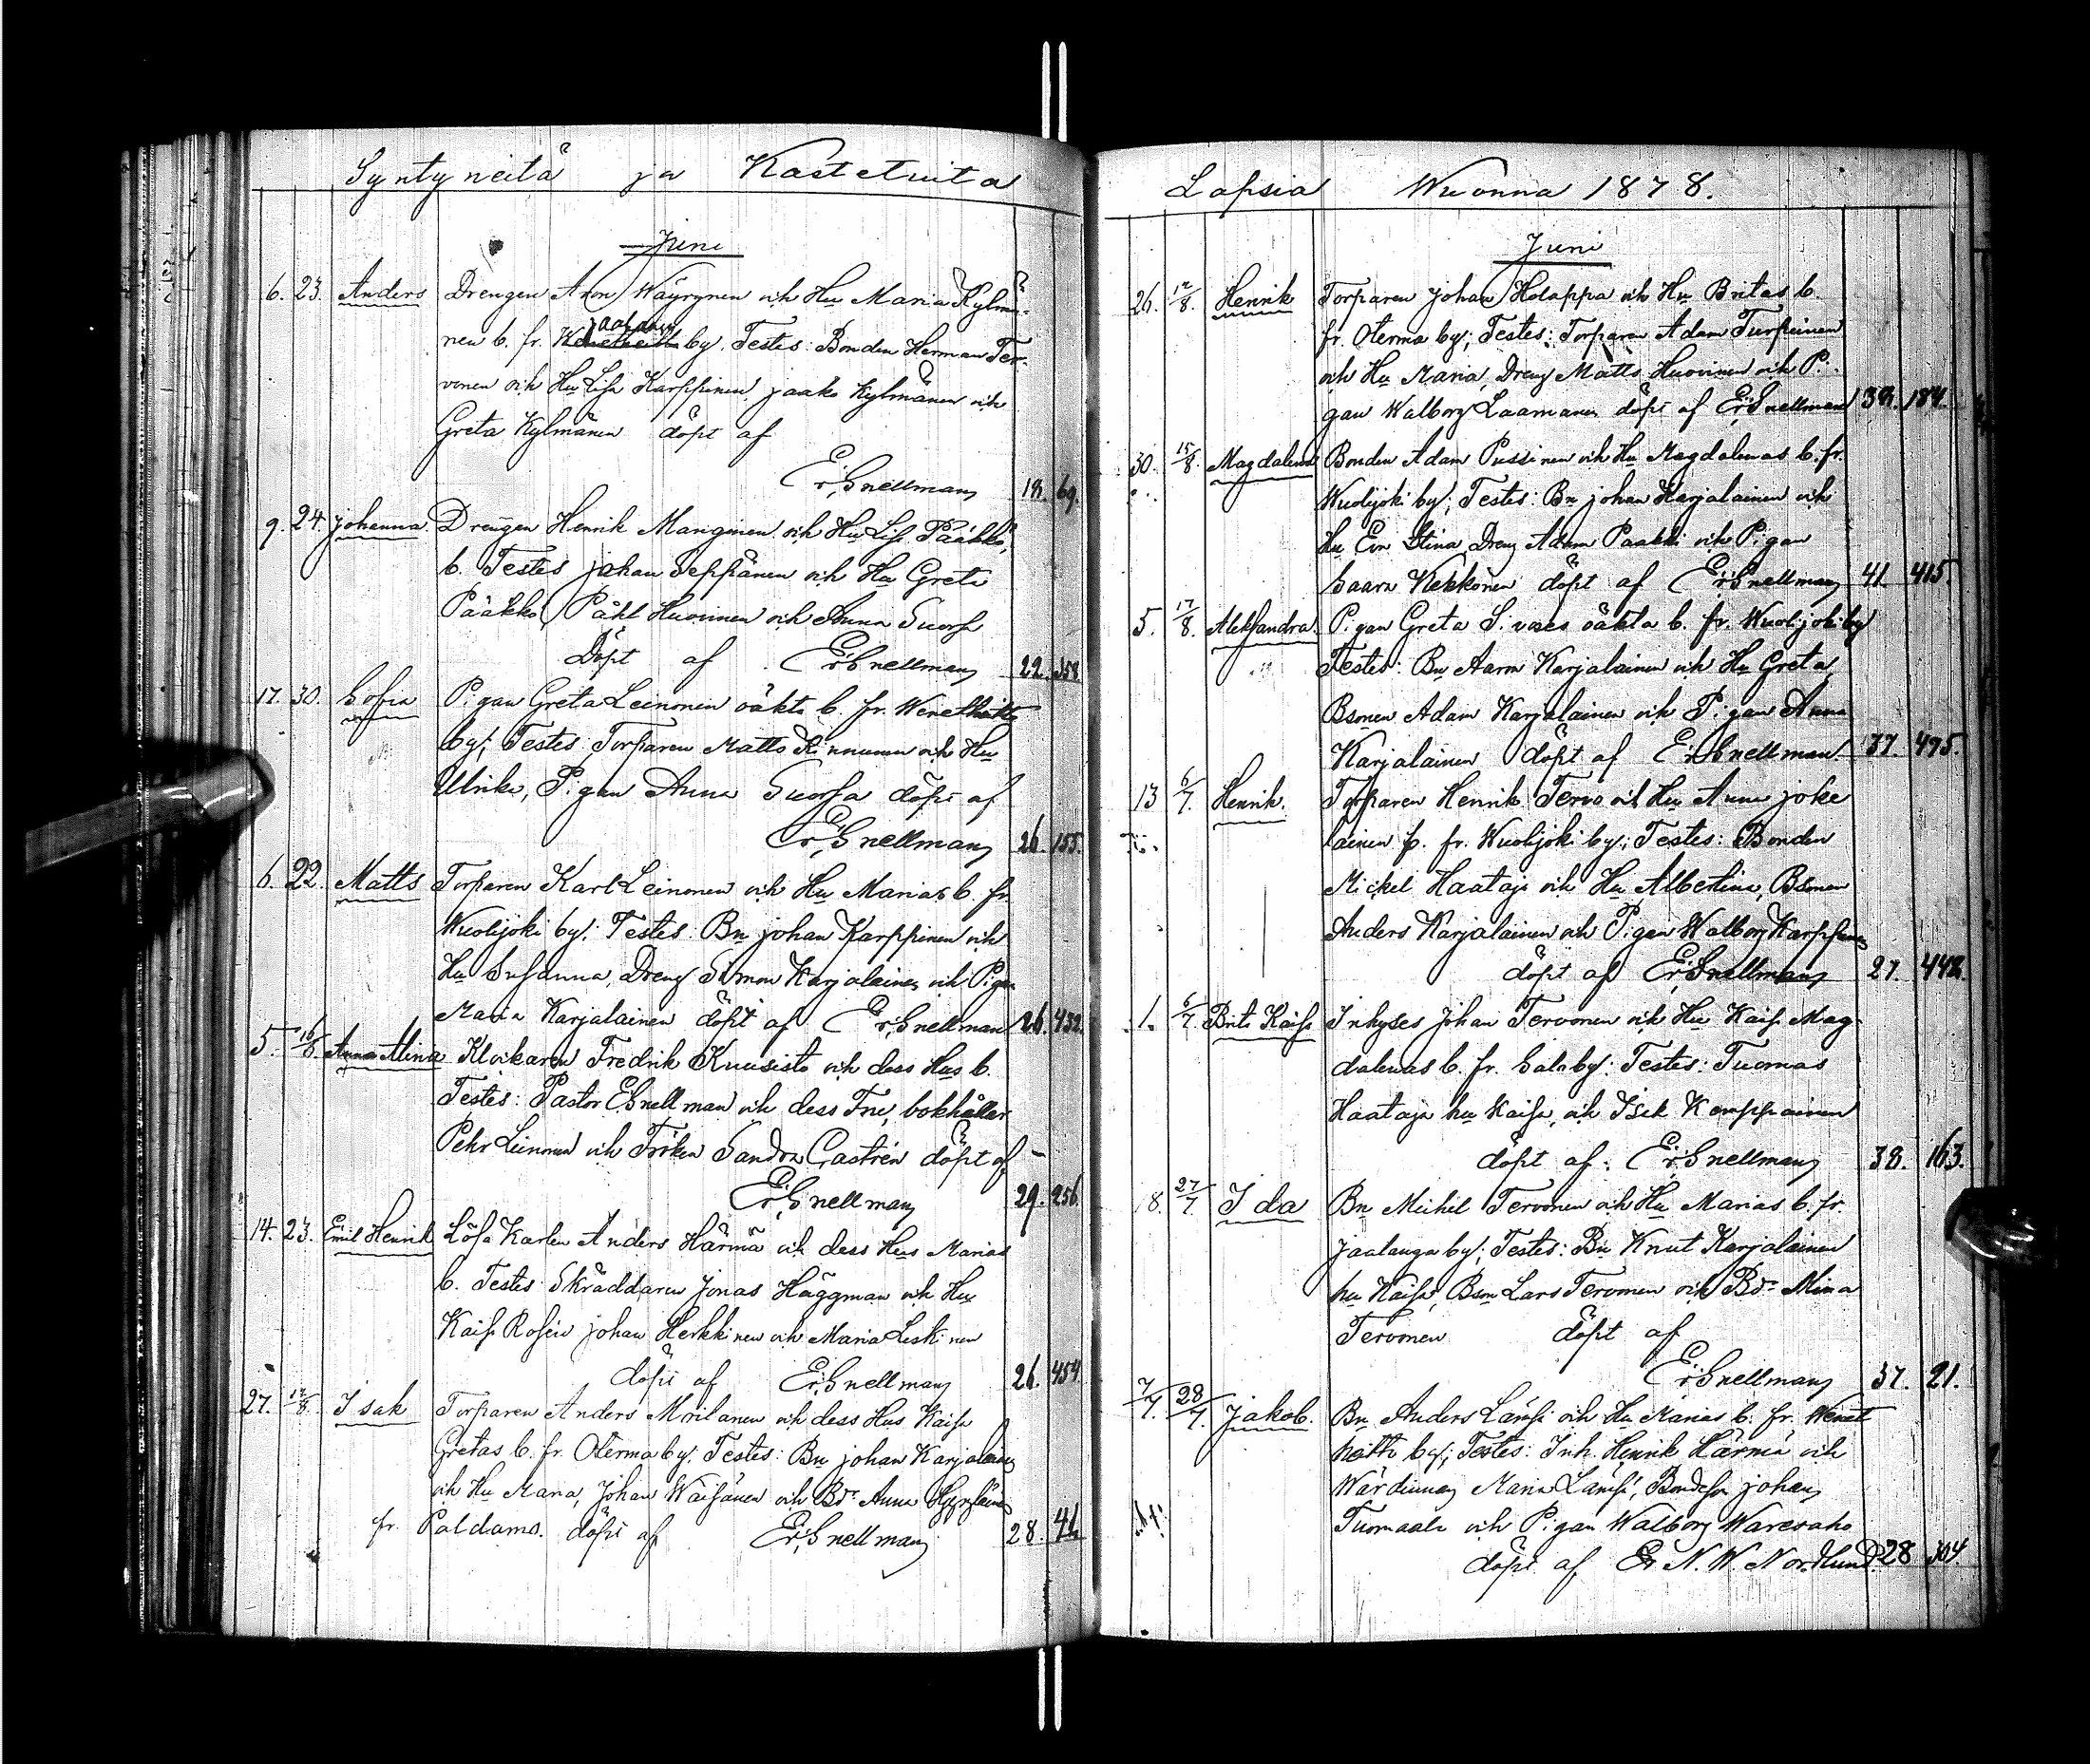 Syntyneitä ja Kastetuita
Juni
6. 23. Anders Drengen Aron Wäyrynen och Hu Maria Kylmä-
nen b. fr. by. Testes: Bonden Herman Ter-
vonen och Hu Lisa Karppinen, Jaako Kylmänen och
Greta Kylmänen döpt af
E:r Snellman 18. 69.
9. 24. Johanna Drengen Henrik Manginen och Hu Lisa Pääkkö,
b. Testes Johan Seppänen och Hu Greta
Pääkkö, Påhl Huovinen och Anna Suorsa
Döpt af E:r Snellman 22. 358
17. 30. Sofia Pigan Greta Leinonen oäkta b. fr. Weneheitto
by; Testes: Torparen Matts Kinnunen och Hu
Ulrika, Pigan Anna Suorsa döpt af
E:r Snellman 26. 155.
6. 22. Matts Torparen Karl Leinonen och Hu Marias b. fr.
Wuolijoki by; Testes: Bn Johan Karppinen och
Hu Susanna, Dreng Simon Karjalainen och Pigan
Maria Karjalainen döpt af E:r Snellman 26. 432.
5. 16/8 Anna Alina Klockaren Fredrik Kuusisto och dess Hus b.
Testes: Pastor E Snellman och dess Fru, bokhåller
Pehr Leinonen och Fröken Sandra Castrén döpt af
E:r Snellman 29. 256.
14. 23. Emil Henrik Lösa Karlen Anders Härmä och dess Hus Marias
b. Testes Skräddaren Jonas Häggman och Hu
Kaisa Rosein Johan Heikkinen och Maria Leskinen
döpt af E:r Snellman 26. 454.
27. 12/8. Isak Torparen Anders Moilanen och dess Hus Kaisa
Gretas b. fr. Oterma by. Testes: Bn Johan Karjalainen
och Hu Maria, Johan Wäisänen och Bdr Anna
fr. Paldamo. döpt af E:r Snellman 28. 41
Lapsia Wuonna 1878.
Juni
26. 12/8. Henrik Torparen Johan Holappa och Hu Britas b.
fr. Oterma by; Testes: Torparen Adam Turpeinen
och Hu Maria, Dreng Matts Huovinen och Pi-
gan Walborg Laamanen döpt af E:r Snellman 38. 184.
30. 15/8. Magdalena Bonden Adam Pussinen och Hu Magdalenas b. fr.
Wuolijoki by; Testes: Bn Johan Karjalainen och
Hu Eva Stina, Dreng Adam Paakki och Pigan
Saara Kekkonen döpt af E:r Snellman 41. 415.
5. 17/8. Aleksandra Pigan Greta S. oäkta b. fr. Wuolijoki by
Testes: Bn Aaron Karjalainen och Hu Greta,
Bsonen Adam Karjalainen och Pigan Anna
Karjalainen döpt af E:r Snellman. 37. 475.
13 6/7. Henrik. Torparen Henrik Tervo och Hu Anna Joke
lainen b. fr. Wuolijoki by; Testes: Bonden
Mickel Haataja och Hu Albertina, Bsonen
Anders Karjalainen och Pigan Walborg Karppinen
döpt af E:r Snellman 27. 442.
1. 6/7 Brita Kaisa Inhyses Johan Tervonen och Hu Kaisa Mag-
dalenas b. fr. Salo by: Testes: Tuomas
Haataja hu Kaisa, och Isak Karppainen
döpt af: E:r Snellman 38. 163.
18. 27/7 Ida Bn Michel Tervonen och Hu Marias b. fr.
Jaalanga by; Testes: Bn Knut Karjalainen
hu Kaisa, Bson Lars Tervonen och Bdr Mina
Tervonen döpt af
E:r Snellman 37. 21.
7/7. 28/7. Jakob. Bn Anders Lämsä och Hu Marias b. fr. Wenet
heitto by; Testes: Inh. Henrik Härmä och
Wärdinnan Maria Lämsä, Bondeson Johan
Tuomaala och Pigan Walborg Waresaho
döpt af E:r N. W. Nordlund. 28 304.